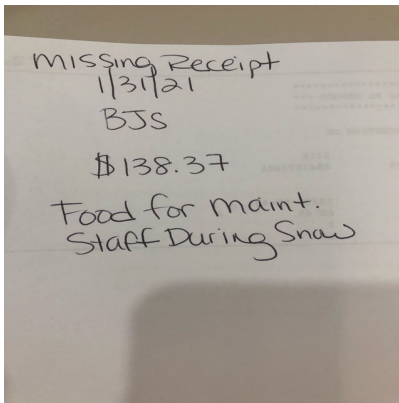 Missing Receipt
1/31/21
BJS
$138.37
Food for maint.
Staff During Snow